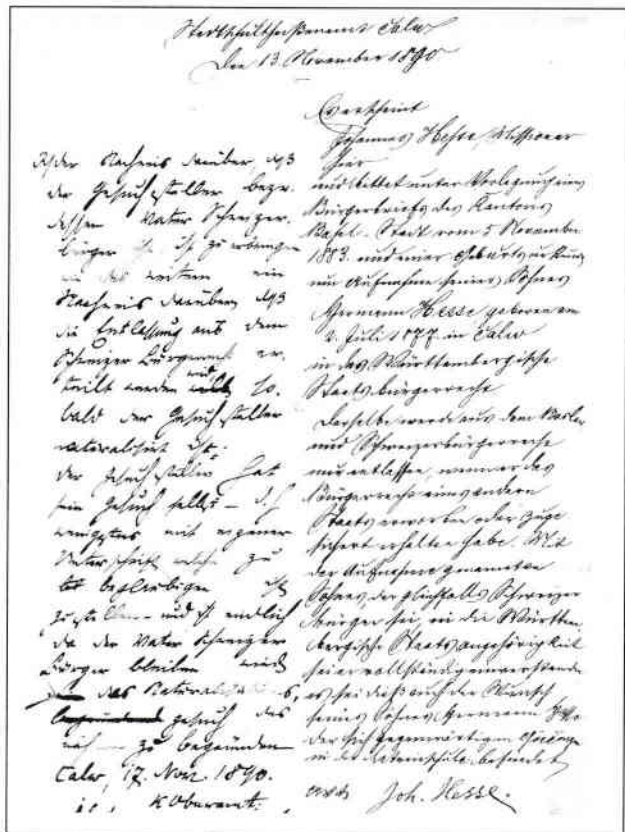 Stadtschultheißenamt Calw
Den 13. November 1890
Erscheint
Johannes Hesse, Missionar
hier
und bittet unter Vorlegung eines
Bürgerbriefs des Kantons
Basel-Stadt vom 5 November
1883. und einer Geburtsurkunde
um Aufnahme seines Sohnes
Hermann Hesse geboren am
2. Juli 1877 in Calw
in das Württembergische
Staatsbürgerrecht
Derselbe werde aus dem Basler
und Schweizerbürgerrecht
nur entlassen, wenn er das
Bürgerrecht eines andern
Staats erworben oder zuge
sichert erhalten habe. Mit
der Aufnahme genannten
Sohnes, der gleichfalls Schweizer
bürger sei, in die Württem
bergische Staatsangehörigkeit
sei er vollständig einverstanden
es sei dieß auch der Wunsch
seines Sohnes Hermann
der sich gegenwärtig in Göppingen
in der Lateinschule befindet
Joh. Hesse.
der Nachweis darüber, daß
der Gesuchsteller bezw.
dessen Vater Schweizer-
bürger ist zu erbringen
des weitern ein
Nachweis darüber, daß
die Entlassung aus dem
Schweizer Bürgerrecht er-
teilt werden wird so-
bald der Gesuchsteller
naturalisirt ist.
der Gesuchsteller hat
sein Gesuch selbst – d. h
wenigstens mit eigener
Unterschrift welche zu
beglaubigen ist
zustellen – und ist endlich
da der Vater Schweizer
Bürger bleiben wird
das
gesuch des
zu begründen
Calw, 17. Nov. 1890.
K Oberamt: